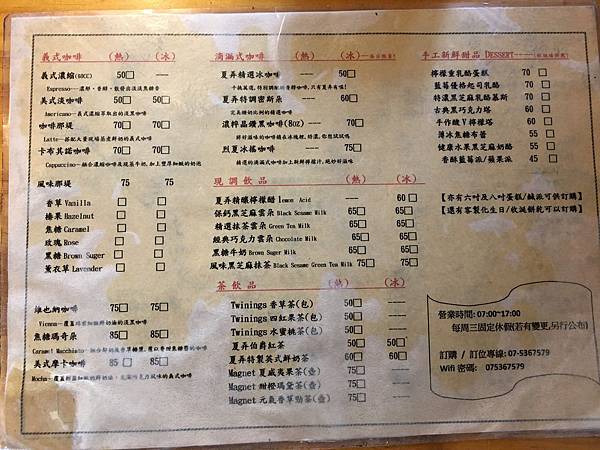 義式咖啡 (熱) (冰)
義式濃縮(60CC) 50□ ---
Espresso--濃郁、香醇、散發出淡淡焦糖香
美式淡咖啡 50□ 50□
Americano--義式濃縮萃取出的淡黑咖啡
咖啡那堤 70□ 70□
Latte--搭配大量現場蒸煮鮮奶的義式咖啡
卡布其諾咖啡 70□ 70□
Cappuccino--綿密濃縮咖啡及現蒸牛奶,加上豐厚細緻的奶泡
風味那堤 75 75
香草 Vanilla □ □
榛果 Hazelnut □ □
焦糖 Caramel □ □
玫瑰 Rose □ □
黑糖 Brown Suger □ □
薰衣草 Lavender □ □
維也納咖啡 75□ 75□
Vienna--覆蓋綿密鮮奶油的淡黑咖啡
焦糖瑪奇朵 85□ 85□
Caramel Macchiato
美式摩卡咖啡 85□ 85□
Mocha
滴漏式咖啡 (熱) (冰)
夏弄精選冰咖啡 --- 50□
夏弄特調密斯朵 --- 60□
完美鮮奶比例的精選咖啡
濃粹晶鑽黑咖啡(8oz) --- 70□
烈夏冰搖咖啡 --- 75□
精選的滴漏式咖啡加上新鮮檸檬汁,絕妙好滋味
現調飲品 (熱) (冰)
夏弄精釀檸檬醋 lemon Acid --- 60□
保鈣黑芝麻雲朵 Black Sesame Milk 65□ 65□
精選抹茶雲朵 Green Tea Milk 65□ 65□
經典巧克力雲朵 Chocolate Milk 65□ 65□
黑糖牛奶 Brown Suger Milk 65□ 65□
風味黑芝麻抹茶 Black Sesame Green Tea Milk 75□ 75□
茶飲品 (熱) (冰)
Twinings 香草茶(包) 50□ ---
Twinings 四紅果茶(包) 50□ ---
Twinings 水蜜桃茶(包) 50□ ---
夏弄伯爵紅茶 50□ 50□
夏弄特製英式鮮奶茶 60□ 60□
Magnet 夏威夷果茶(壺) 75□
Magnet 甜橙瑪黛茶(壺) 75□
Magnet 元氣香草勁茶(壺) 75□
手工新鮮甜品 DESSERT
檸檬重乳酪蛋糕 70 □
藍莓優格起司乳酪 70 □
特濃黑芝麻乳酪慕斯 70 □
古典黑巧克力塔 60 □
手作酸丫檸檬塔 60 □
薄冰焦糖布蕾 55 □
健康水果黑芝麻奶酪 55 □
香酥藍莓派/蘋果派 45 □
【亦有六吋及八吋蛋糕/鹹派可供訂購】
【還有客製化生日/收涎餅乾可以訂購】
營業時間: 07:00~17:00
每周三固定休假(若有變更,另行公布)
訂購 / 訂位專線: 07-5367579
Wifi 密碼: 075367579